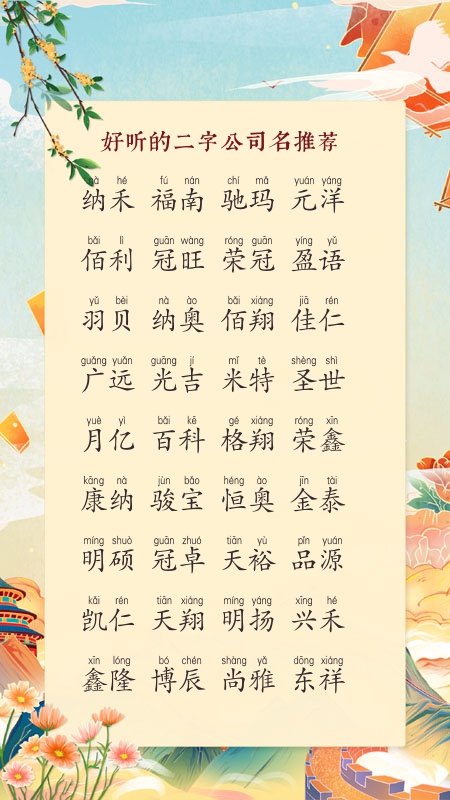 好听的二字公司名推荐
nà hé fú nán chí mǎ yuán yáng
纳禾 福南 驰玛 元洋
bǎi lì guān wàng róng guān yíng yǔ
佰利 冠旺 荣冠 盈语
yǔ bèi nà ào bǎi xiáng jiā rén
羽贝 纳奥 佰翔 佳仁
guǎng yuǎn guāng jí mǐ tè shèng shì
广远 光吉 米特 圣世
yuè yì bǎi kē gé xiáng róng xīn
月亿 百科 格翔 荣鑫
kāng nà jùn bǎo héng ào jīn tài
康纳 骏宝 恒奥 金泰
míng shuò guān zhuó tiān yù pǐn yuán
明硕 冠卓 天裕 品源
kǎi rén tiān xiáng míng yáng xīng hé
凯仁 天翔 明扬 兴禾
xīn lóng bó chén shàng yǎ dōng xiáng
鑫隆 博辰 尚雅 东祥